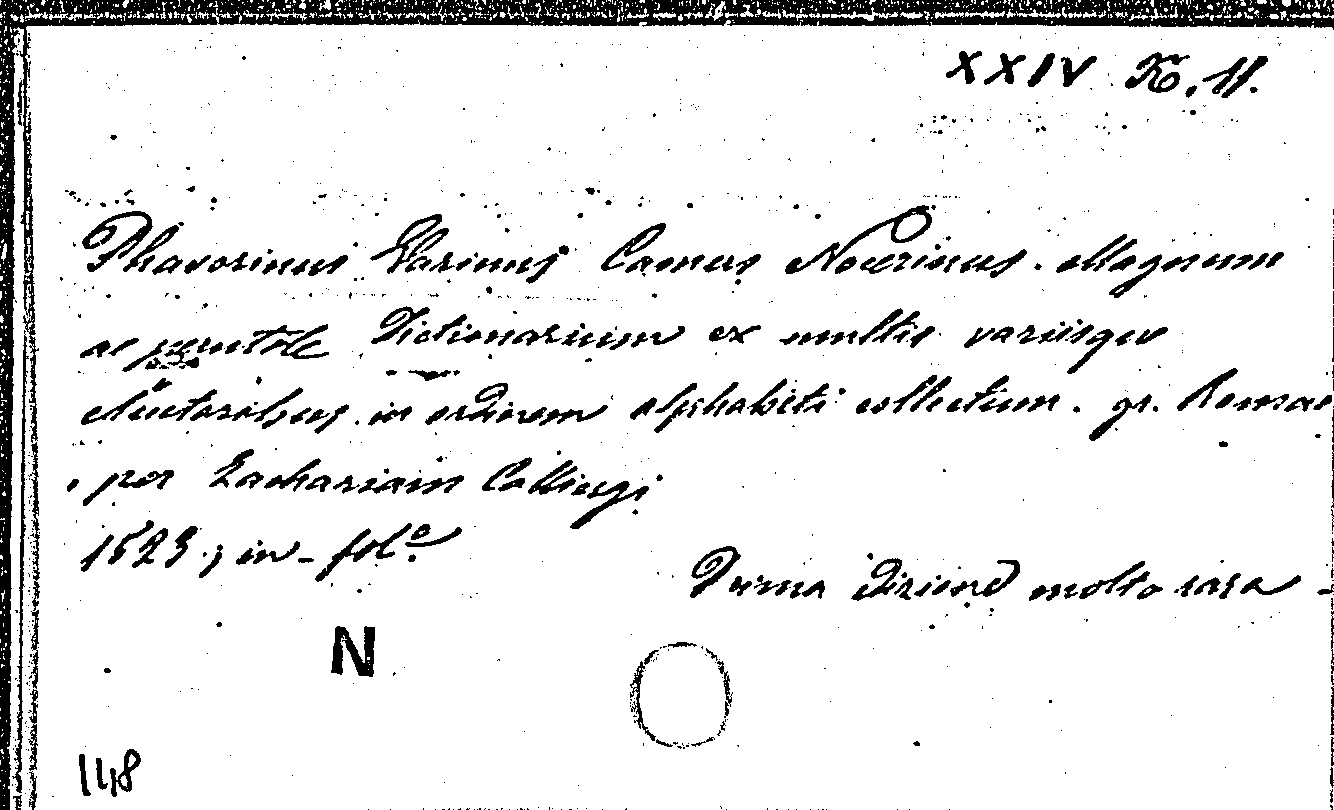 XXIV K. 11.
Phavorinus Varinus Camers Nocerinus. Magnum
ac perutile Dictionarium ex multis variisque
Auctoribus in ordinem alphabeti collectum. gr. Romae
, per Zachariam Calliergi
1523; in-fol.º
Prima edizione molto rara -
N
148